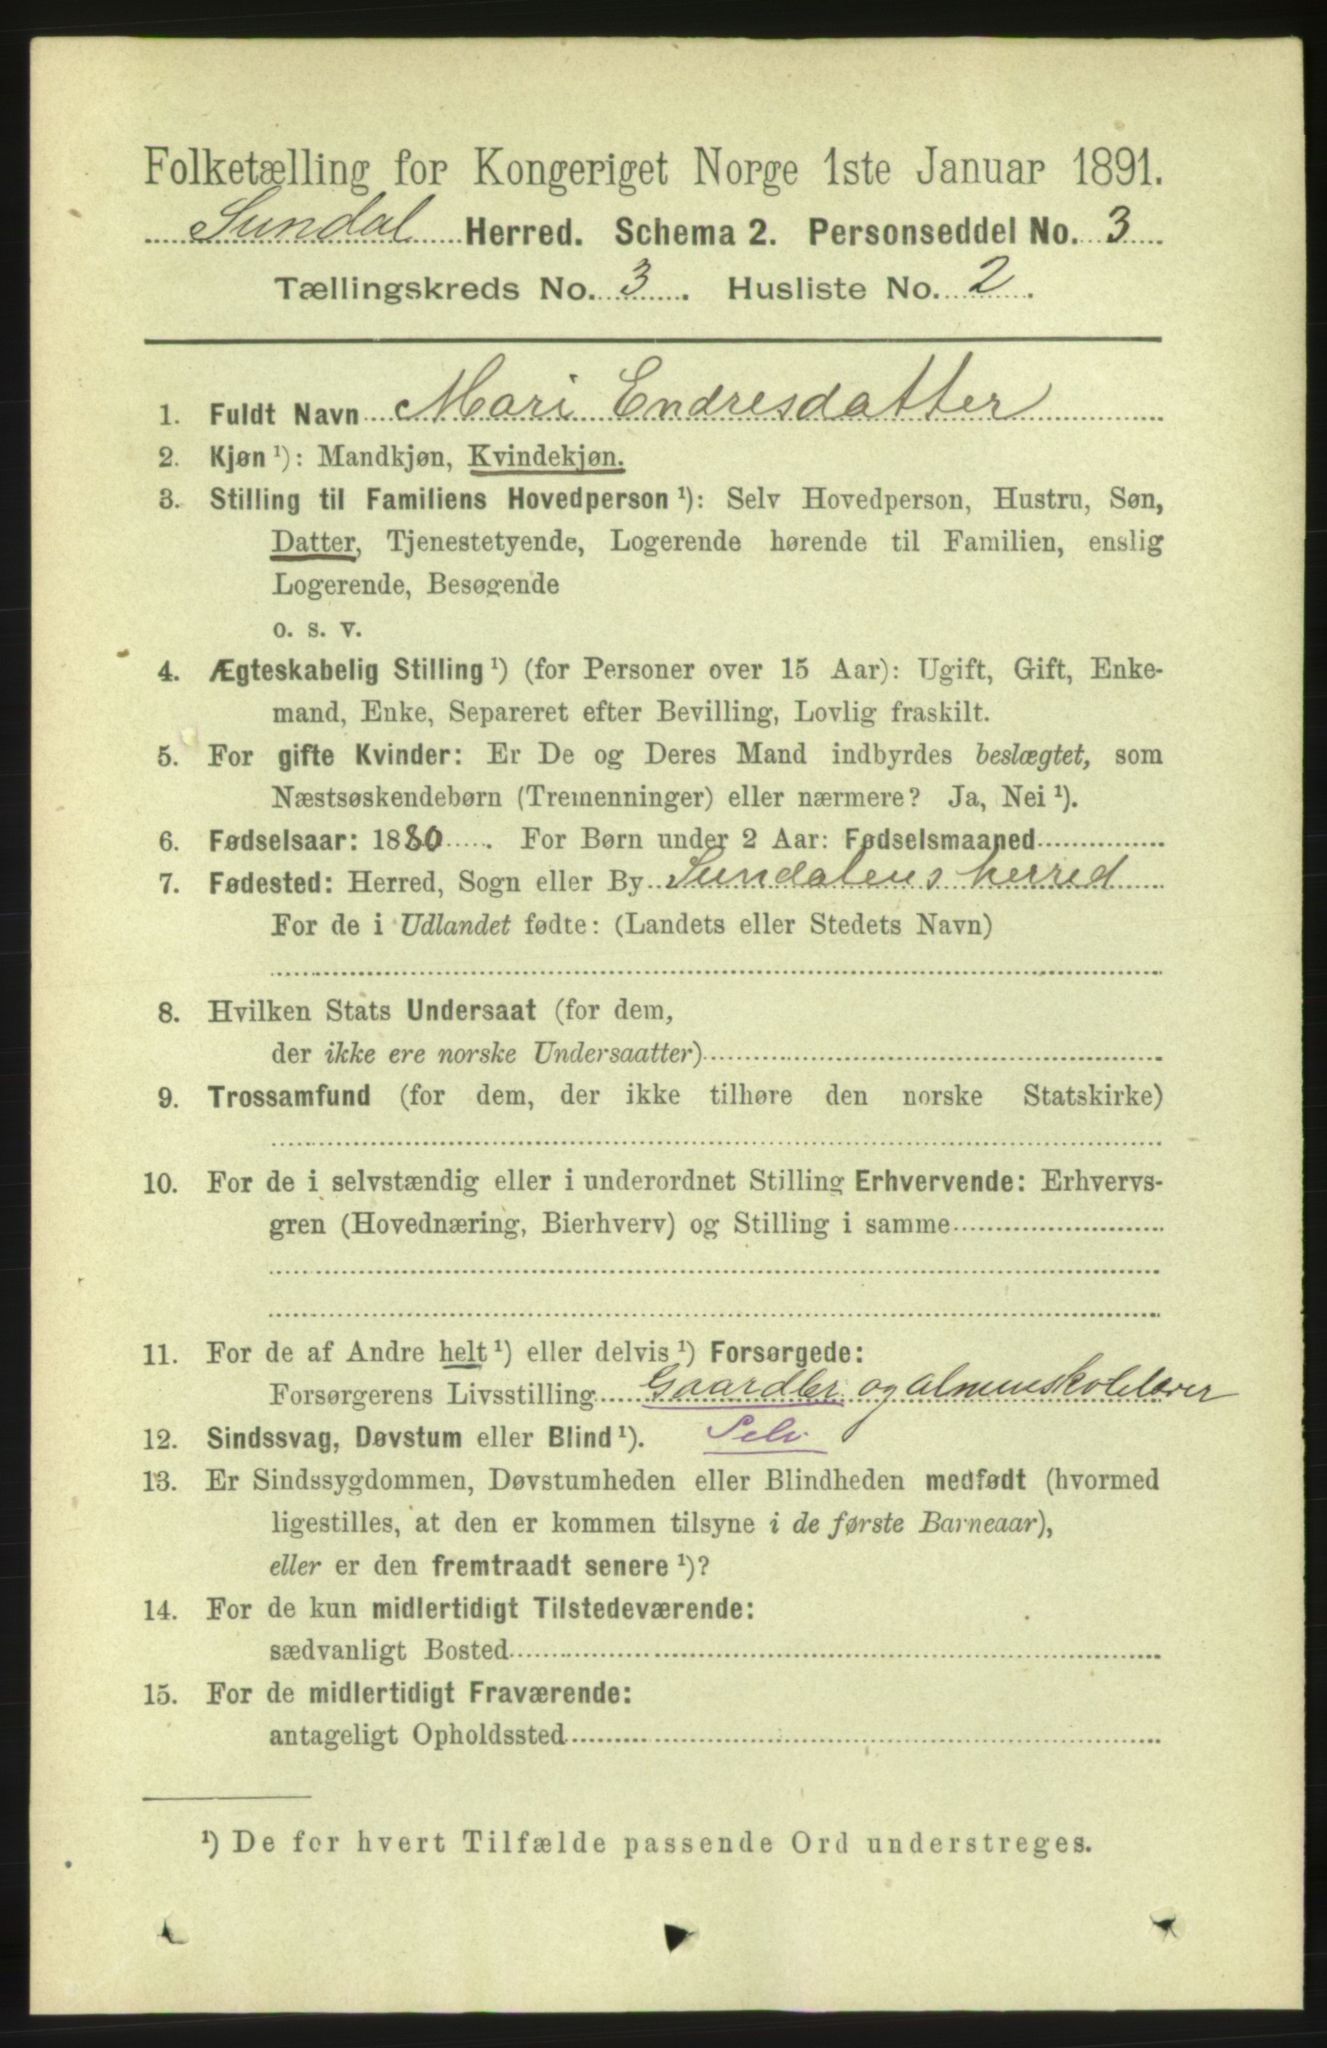 Folketælling for Kongeriget Norge 1ste Januar 1891.
Sundal Herred. Schema 2. Personseddel No. 3
Tællingskreds No. 3. Husliste No. 2.
1. Fuldt Navn Mari Endresdatter
2. Kjøn ¹): Mandkjøn, Kvindekjøn.
3. Stilling til Familiens Hovedperson ¹): Selv Hovedperson, Hustru, Søn,
Datter, Tjenestetyende, Logerende hørende til Familien, enslig
Logerende, Besøgende
o. s. v.
4. Ægteskabelig Stilling ¹) (for Personer over 15 Aar): Ugift, Gift, Enke-
mand, Enke, Separeret efter Bevilling, Lovlig fraskilt.
5. For gifte Kvinder: Er De og Deres Mand indbyrdes beslægtet, som
Næstsøskendebørn (Tremenninger) eller nærmere? Ja, Nei ¹).
6. Fødselsaar: 1880. For Børn under 2 Aar: Fødselsmaaned
7. Fødested: Herred, Sogn eller By Sundalens herred
For de i Udlandet fødte: (Landets eller Stedets Navn)
8. Hvilken Stats Undersaat (for dem,
der ikke ere norske Undersaatter)
9. Trossamfund (for dem, der ikke tilhøre den norske Statskirke)
10. For de i selvstændig eller i underordnet Stilling Erhvervende: Erhvervs-
gren (Hovednæring, Bierhverv) og Stilling i samme
11. For de af Andre helt ¹) eller delvis ¹) Forsørgede:
Forsørgerens Livsstilling Gaardbr. og almueskolelærer
12. Sindssvag, Døvstum eller Blind ¹). Selv
13. Er Sindssygdommen, Døvstumheden eller Blindheden medfødt (hvormed
ligestilles, at den er kommen tilsyne i de første Barneaar),
eller er den fremtraadt senere ¹)?
14. For de kun midlertidigt Tilstedeværende:
sædvanligt Bosted
15. For de midlertidigt Fraværende:
antageligt Opholdssted
¹) De for hvert Tilfælde passende Ord understreges.